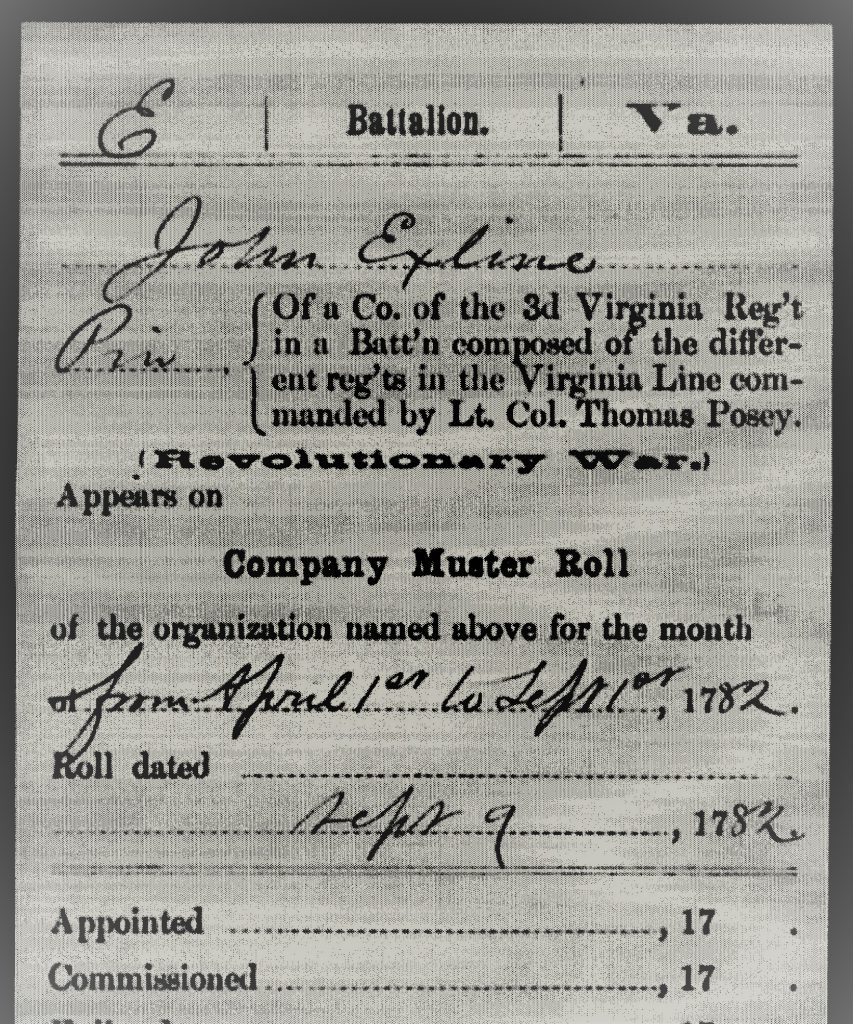 E | Battalion. | Va.
John Exline
Priv, Of a Co. of the 3d Virginia Reg't
in a Batt'n composed of the differ-
ent reg'ts in the Virginia Line com-
manded by Lt. Col. Thomas Posey.
(Revolutionary War.)
Appears on
Company Muster Roll
of the organization named above for the month
of from April 1st to Sept 1st, 1782.
Roll dated
Sept 9, 1782.
Appointed , 17 .
Commissioned , 17 .